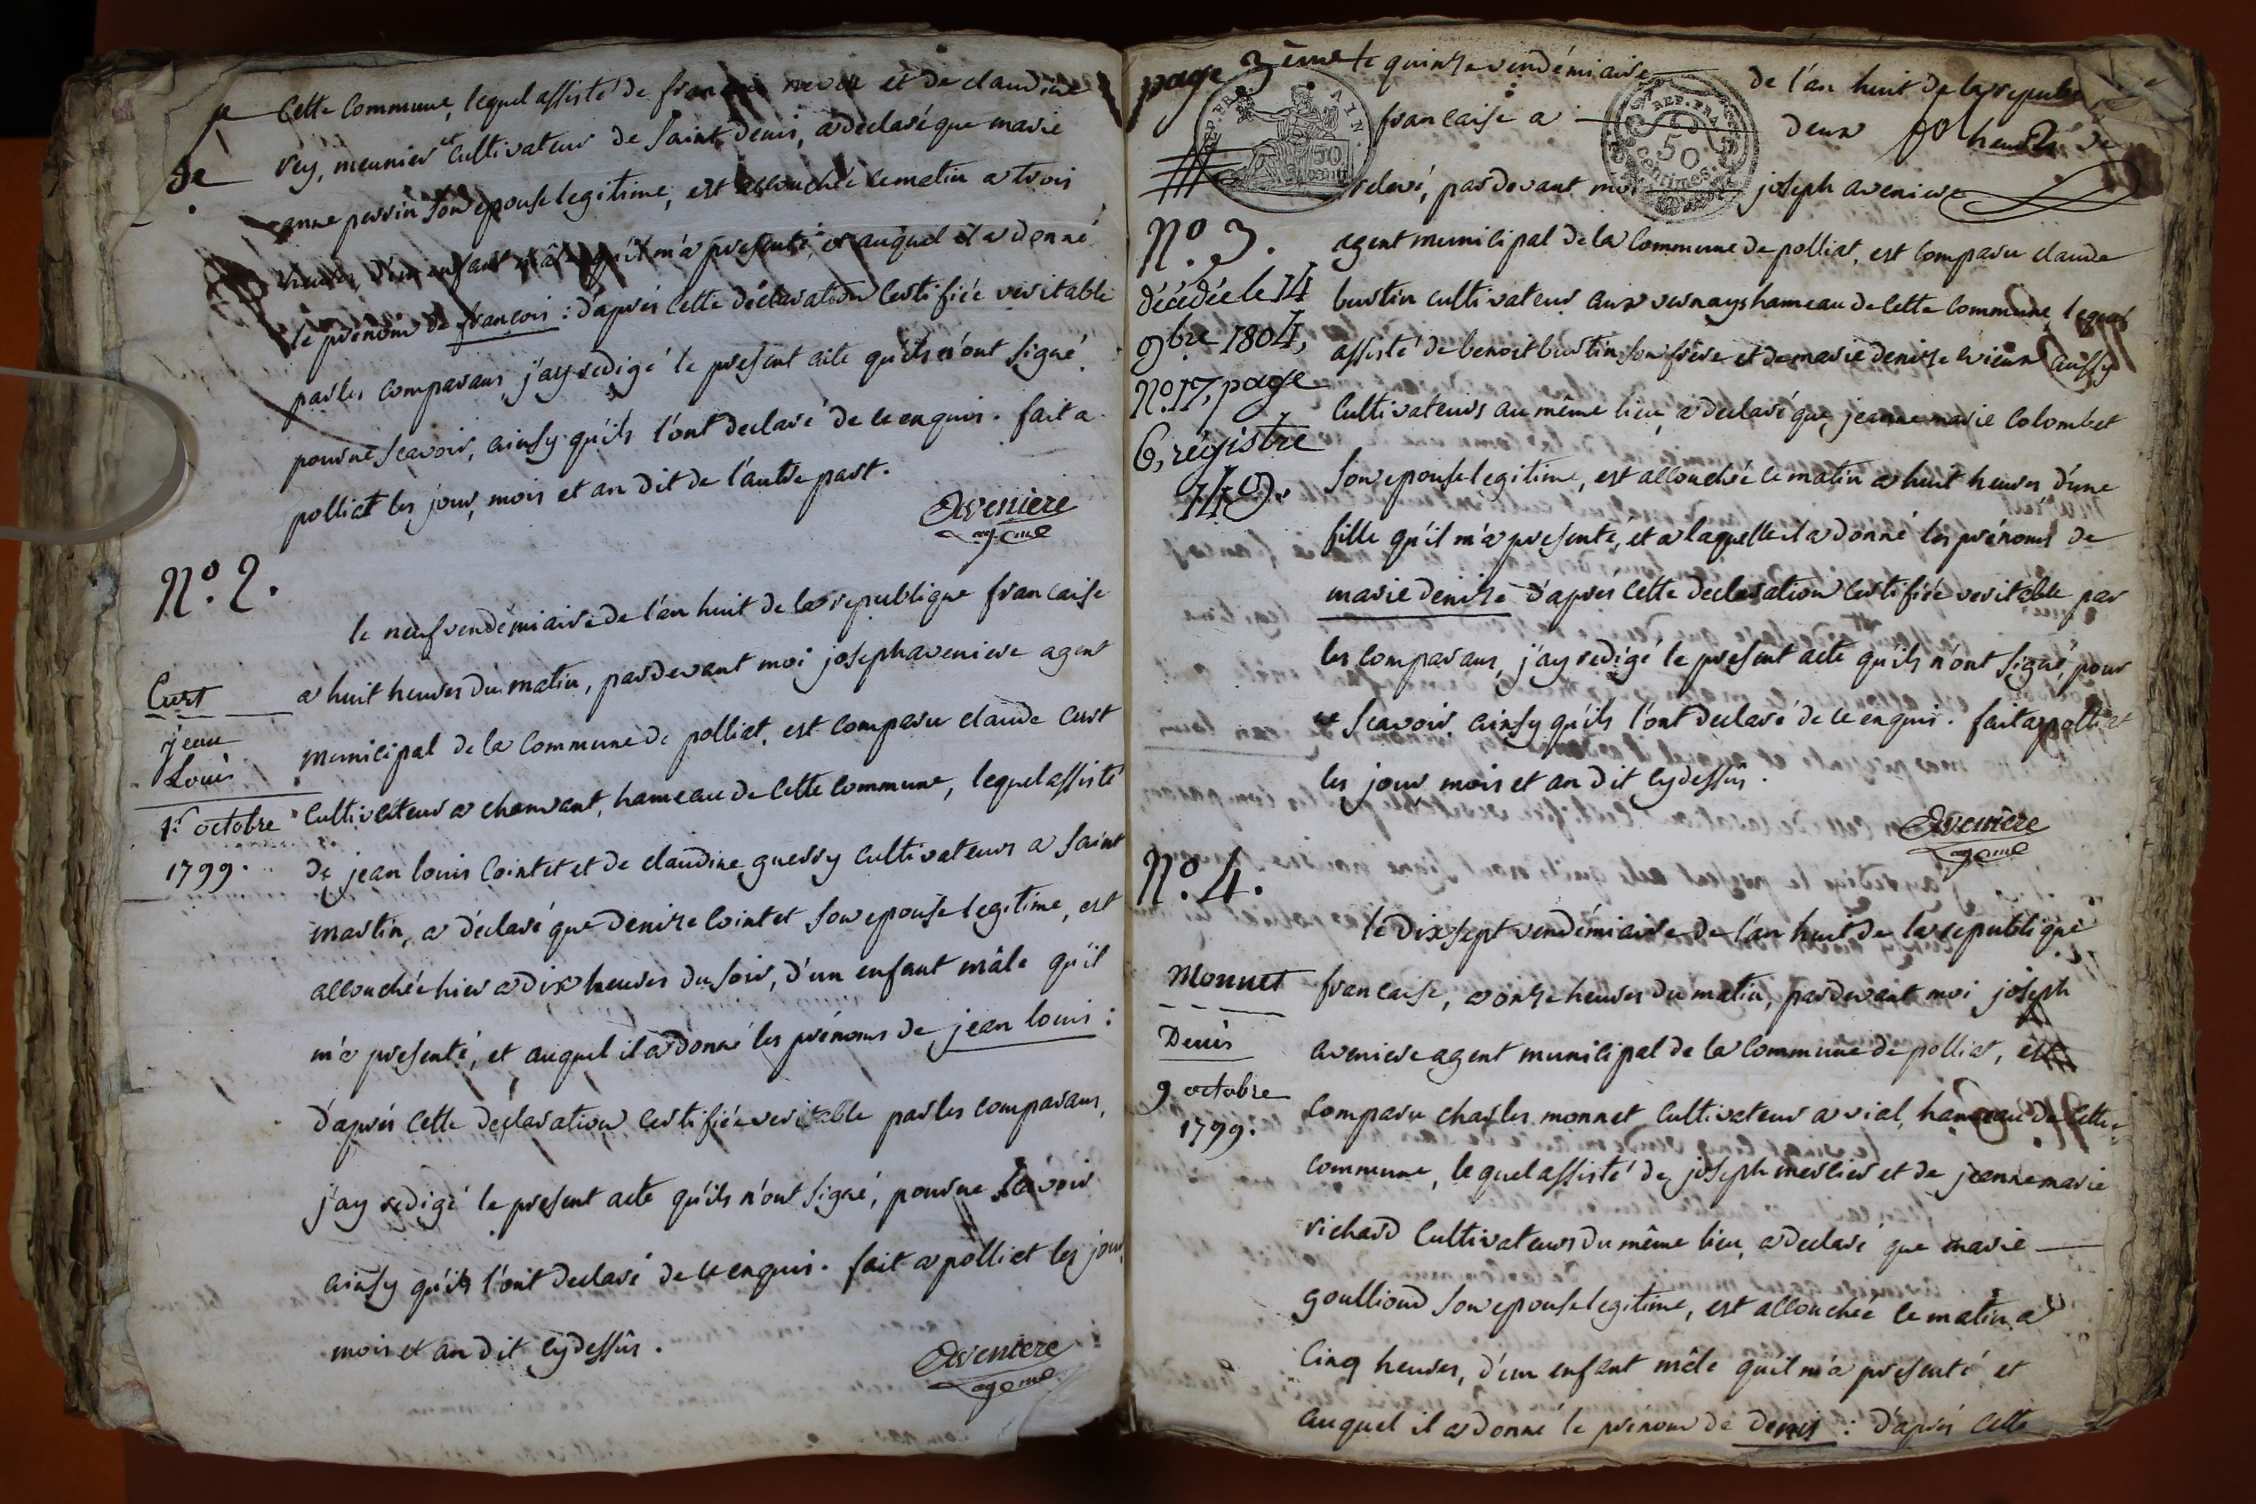 Cette commune, lequel assisté de et de claudine
rey, meunier et cultivateur de Saint denis, a declaré que marie
anne perrin son epouse legitime, est accouchée ce matin a trois
heures, d'un enfant mâle qu'il m'a presenté, et auquel il a donné
le prénom de françois : d'aprés cette déclaration certifiée veritable
par les comparans, j'ay redigé le present acte qu'ils n'ont signé
pour ne scavoir, ainsy qu'ils l'ont declaré de ce enquis. fait a
polliat les jour, mois et an dit de l'autre part.
Aveniere
ag. mal
N.o 2.
le neuf vendémiaire de l'an huit de la republique francaise
a huit heures du matin, pardevant moi joseph aveniere agent
municipal de la commune de polliat, est comparu claude curt
cultivateur a chanvant, hameau de cette commune, lequel assisté
de jean louis cointet et de claudine guerry cultivateurs a saint
martin, a déclaré que denise cointet son epouse legitime, est
accouchée hier a dix heures du soir, d'un enfant mâle qu'il
m'a presenté, et auquel il a donné les prénoms de jean louis :
d'aprés cette déclaration certifiée veritable par les comparans,
j'ay redigé le present acte qu'ils n'ont signé, pour ne scavoir
ainsy qu'ils l'ont declaré de ce enquis. fait a polliat les jour,
mois et an dit cydessûs.
Aveniere
ag. mal
Curt
jean
Louis
1.r octobre
1799.
page 3ème
le quinze vendémiaire de l'an huit de la republ
francaise a deux heures de
relevé, pardevant moi joseph aveniere
REP. FRA.
50
centimes
N.o 3.
décédée le 14
9bre 1804,
N.o 17, page
6, régistre
agent municipal de la commune de polliat, est comparu claude
burtin cultivateur aux vernays hameau de cette commune, lequel
assisté de benoit burtin son frère et de marie denise vieux aussy
cultivateurs au même lieu, a declaré que jeanne marie colombet
son epouse legitime, est accouchée ce matin a huit heures d'une
fille qu'il m'a presenté, et a laquelle il a donné les prénoms de
marie denise d'aprés cette declaration certifiée veritable par
les comparans, j'ay redigé le present acte qu'ils n'ont signé, pour
ne scavoir, ainsy qu'ils l'ont declaré de ce enquis. fait a polliat
les jour mois et an dit cydessûs.
Aveniere
ag. mal
N.o 4.
le dix sept vendémiaire de l'an huit de la republique
francaise, a onze heures du matin, pardevant moi joseph
aveniere agent municipal de la commune de polliat, est
comparu charles monnet cultivateur a vial, hameau de cette
commune, lequel assisté de joseph merlier et de jeanne marie
richard cultivateurs du même lieu, a declaré que marie
goullioud son epouse legitime, est accouchée ce matin a
cinq heures, d'un enfant mâle qu'il m'a presenté et
auquel il a donné le prenom de denis : d'aprés cette
Monnet
Denis
9 octobre
1799.